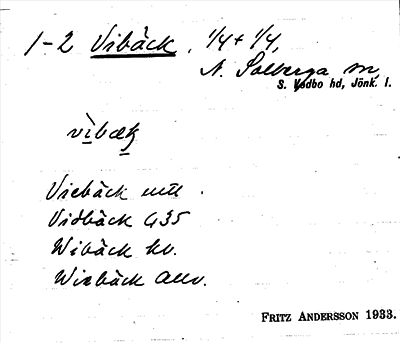 1-2 Vibäck, 1/4 + 1/4,
N. Solberga sn
S. Vedbo hd, Jönk. l.
Viebäck
Vidbäck G 35
Wibäck hv.
Wiebäck allv.
FRITZ ANDERSSON 1933.